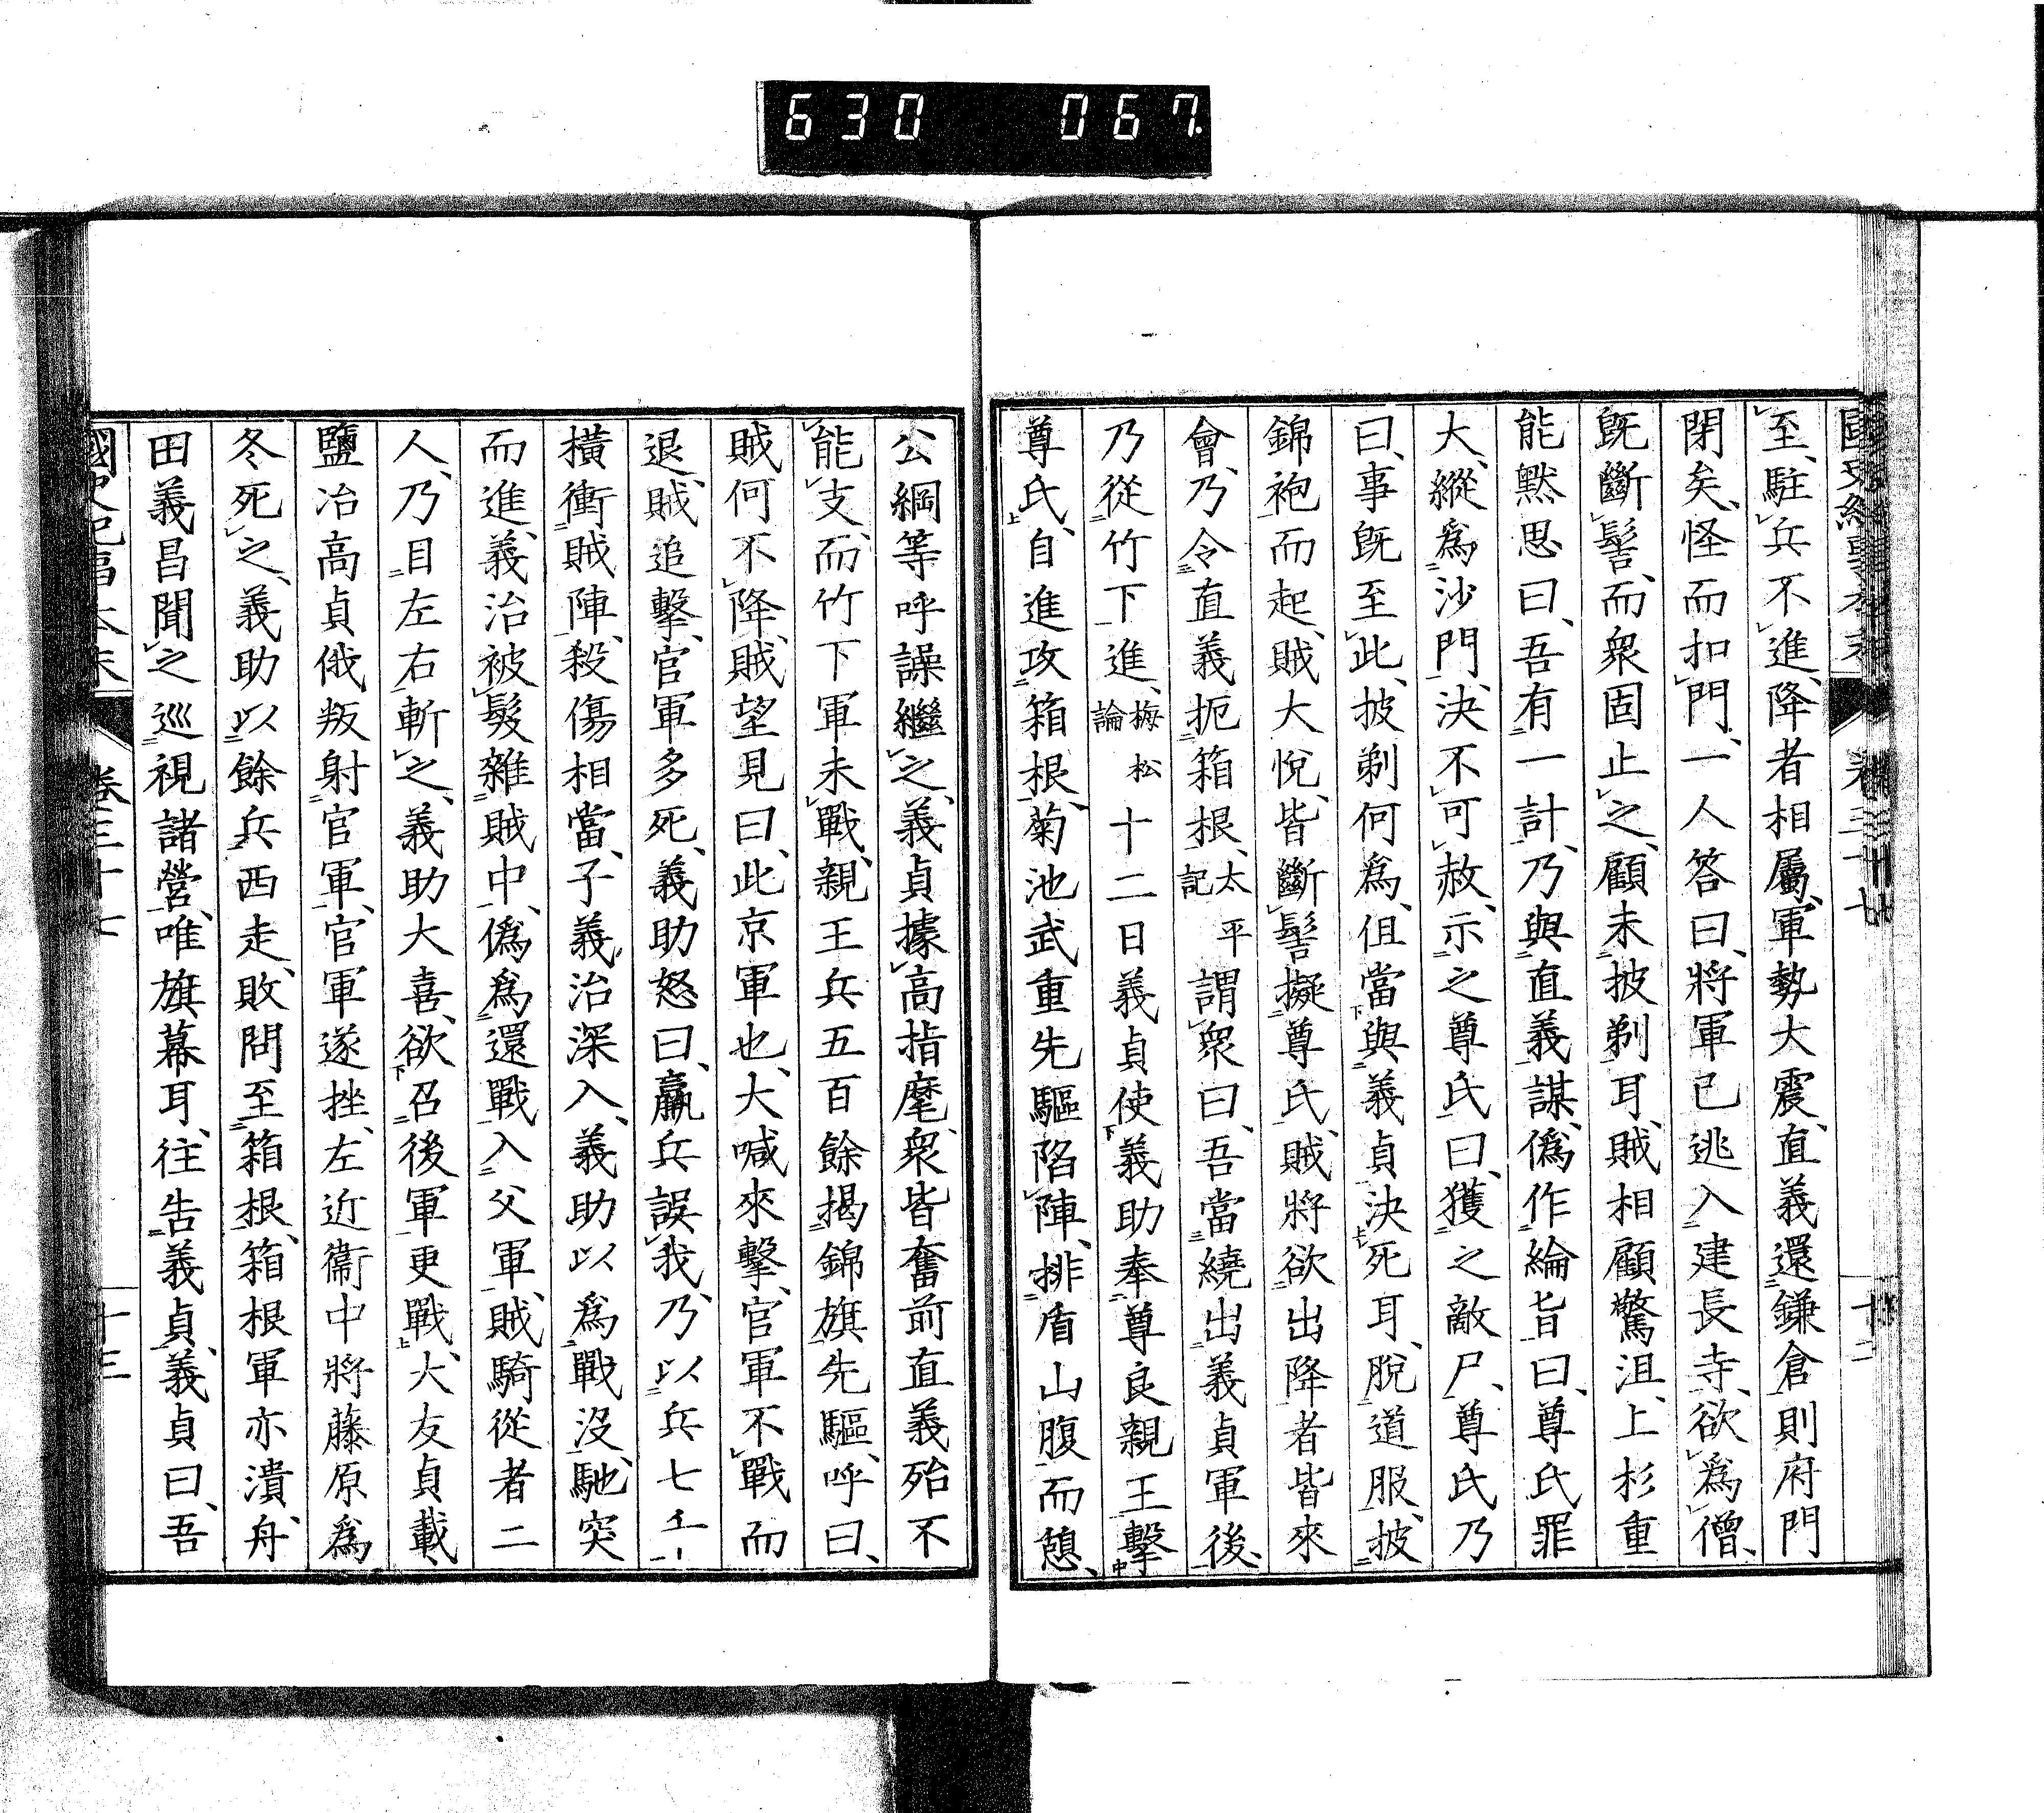 630 067.
國史紀事本末 卷三十七 十二
至、駐兵不進、降者相屬、軍勢大震、直義還鎌倉則府門
閉矣、怪而扣門、一人答曰、將軍已逃入建長寺、欲爲僧、
既斷髻、而衆固止之、顧未披剃耳、賊相顧驚沮、上杉重
能默思曰、吾有一計、乃與直義謀、僞作綸旨曰、尊氏罪
大、縱爲沙門、決不可赦、示之尊氏曰、獲之敵尸、尊氏乃
曰、事既至此、披剃何爲、但當與義貞決死耳、脫道服、披
錦袍而起、賊大悅、皆斷髻擬尊氏、賊將欲出降者皆來
會、乃令直義扼箱根、太平記謂衆曰、吾當繞出義貞軍後、
乃從竹下進、梅松論十二日義貞使義助奉尊良親王擊
尊氏、自進攻箱根、菊池武重先驅陷陣、排盾山腹而憩、
公綱等呼譟繼之、義貞據高指麾、衆皆奮前直義殆不
能支、而竹下軍未戰、親王兵五百餘揭錦旗先驅、呼曰、
賊何不降、賊望見曰、此京軍也、大喊來擊、官軍不戰而
退、賊追擊、官軍多死、義助怒曰、羸兵誤我、乃以兵七千
橫衝賊陣、殺傷相當、子義治深入、義助以爲戰沒、馳突
而進、義治被髮雜賊中、僞爲還戰、入父軍、賊騎從者二
人、乃目左右斬之、義助大喜、欲召後軍更戰、大友貞載、
鹽冶高貞俄叛射官軍、官軍遂挫、左近衞中將藤原爲
冬死之、義助以餘兵西走、敗問至箱根、箱根軍亦潰、舟
田義昌聞之巡視諸營、唯旗幕耳、往告義貞、義貞曰、吾
國史紀事本末 卷三十七 十三